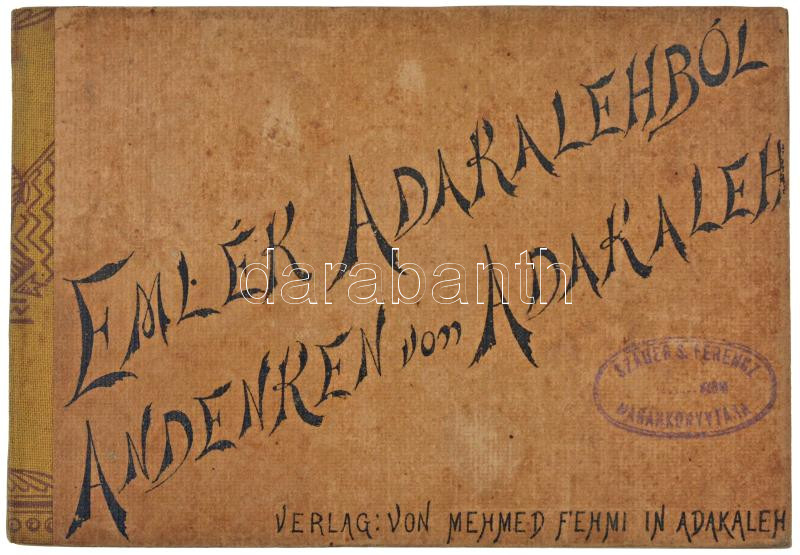 EMLÉK ADAKALEHBÓL
ANDENKEN von ADAKALEH
darabanth
FERENCZ
MAGÁNKÖNYVTÁRA
VERLAG: VON MEHMED FEHMI IN ADAKALEH